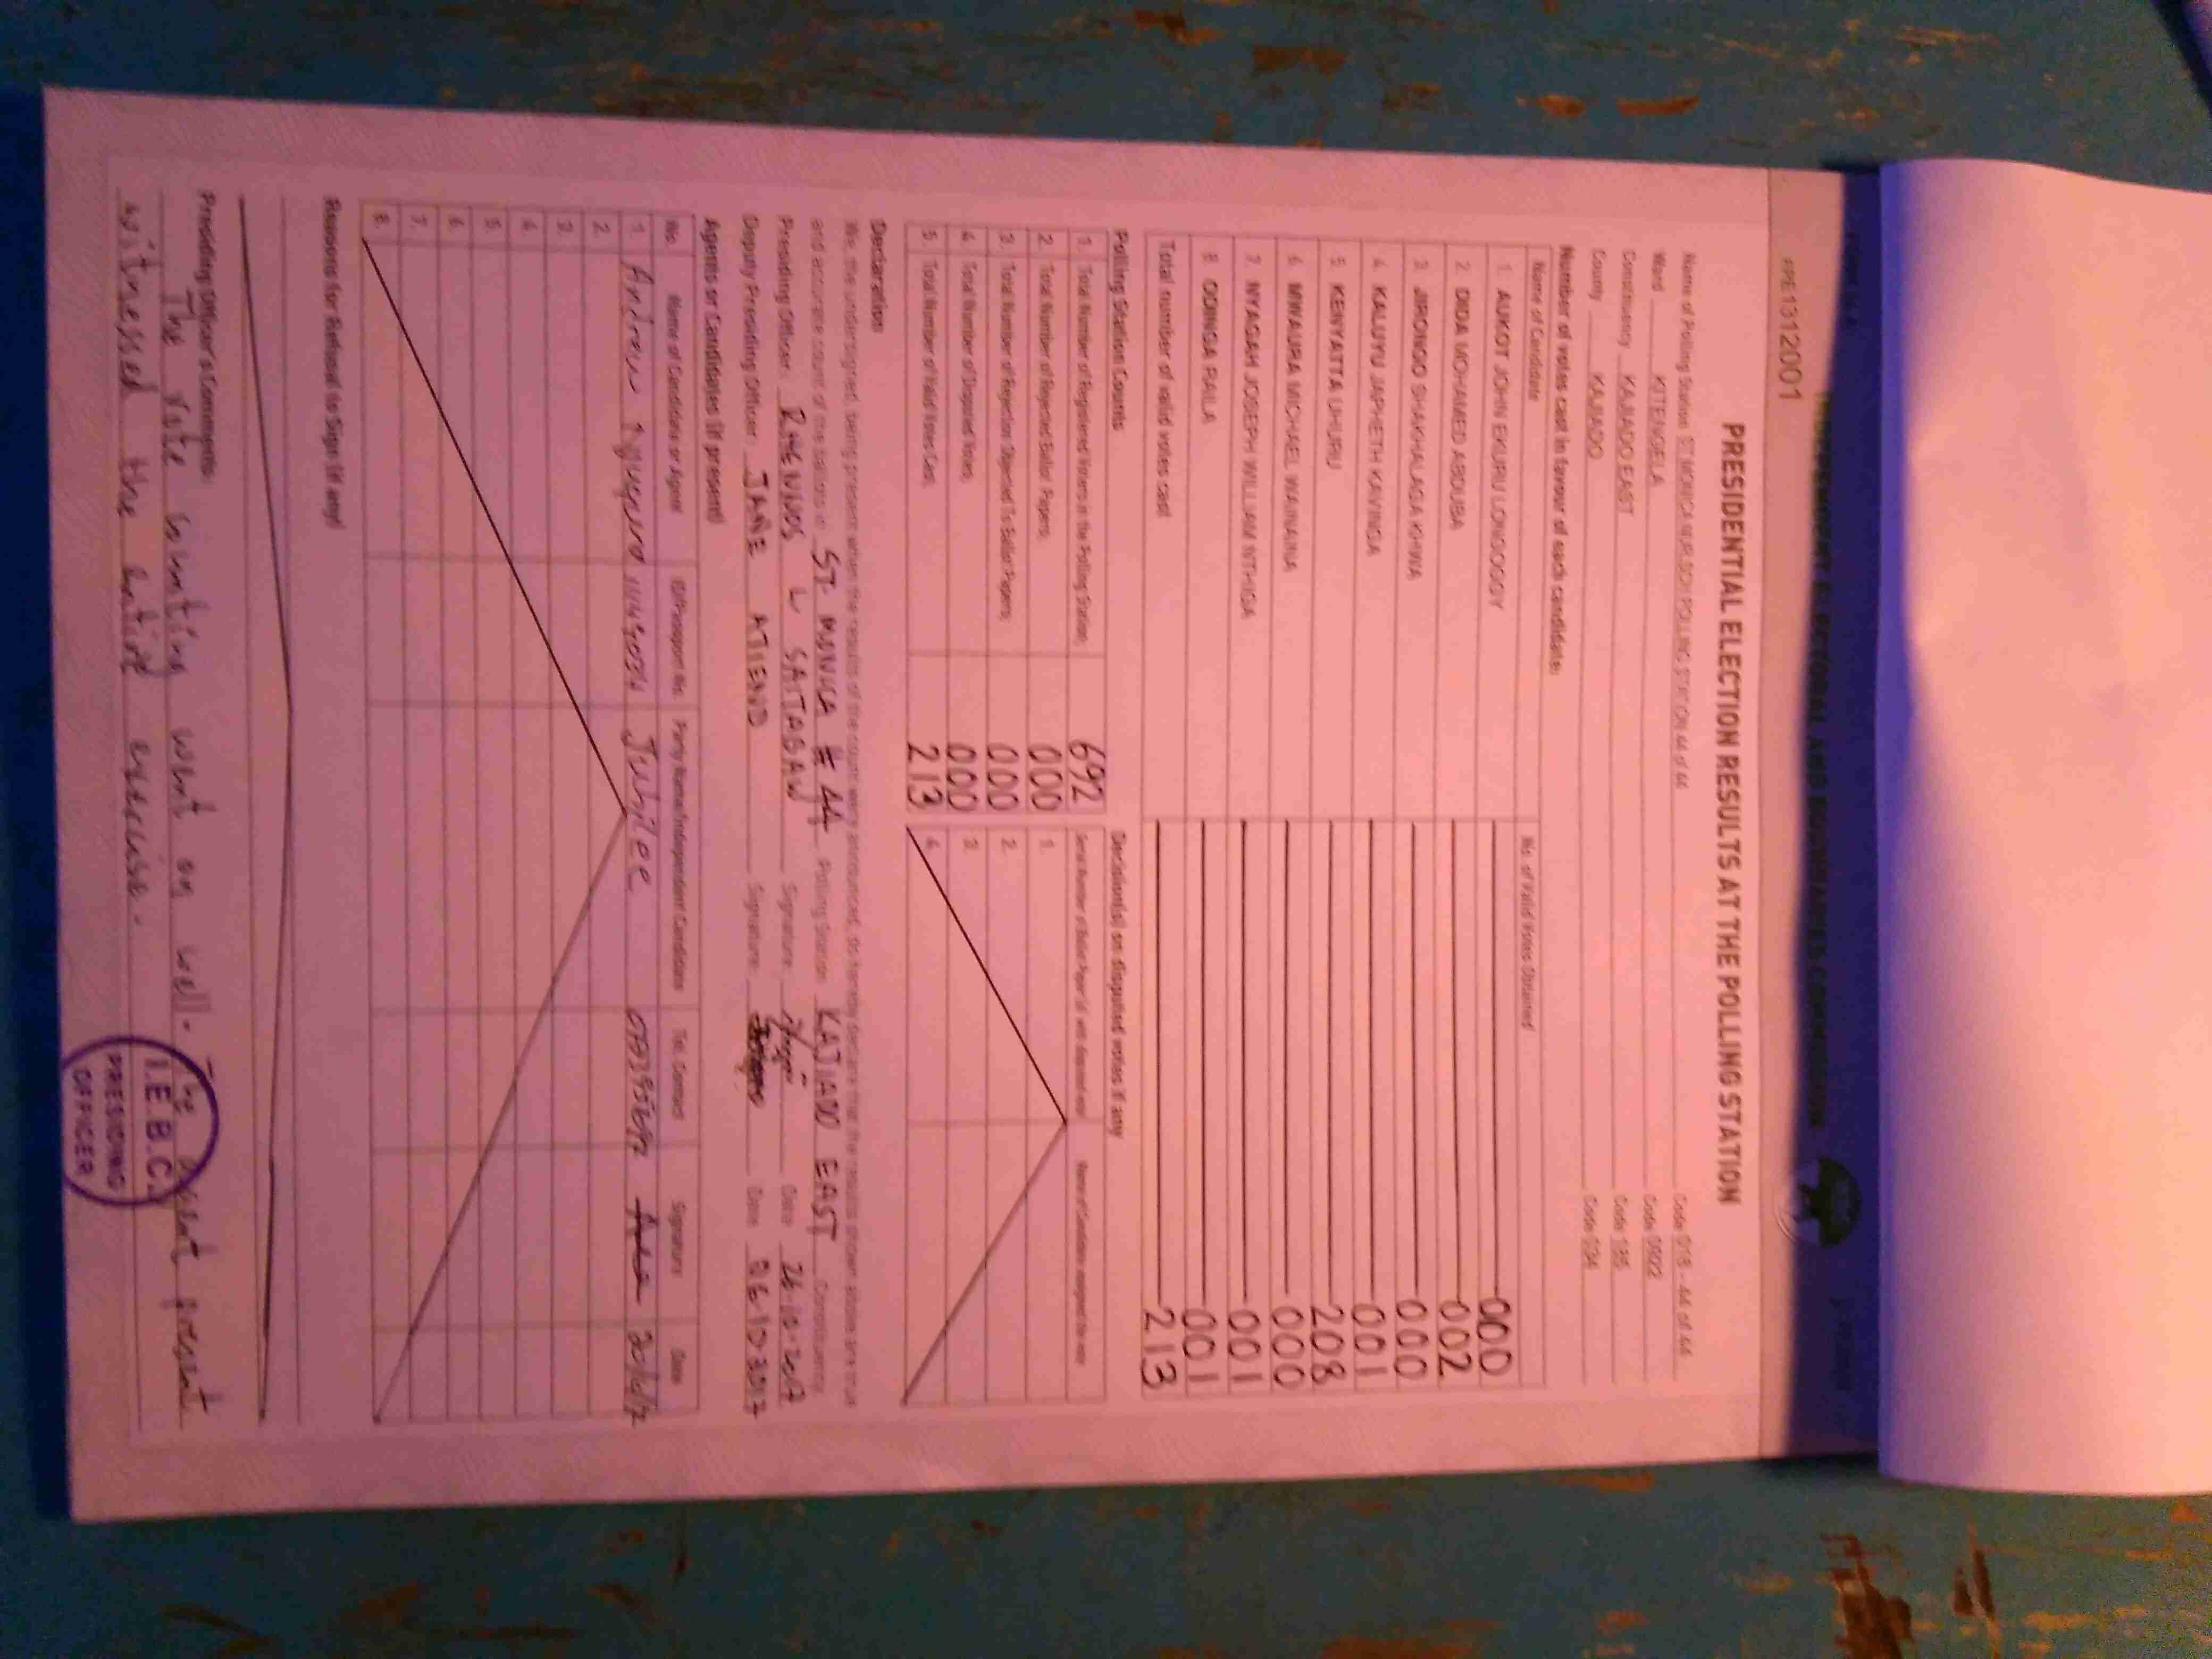 PRESIDENTIAL ELECTION RESULTS AT THE POLLING STATION
Name of Polling Station ST MONICA NUR. SCH POLLING STATION 44 of 44 Code 018 - 44 of 44
Ward KITENGELA Code 0922
Constituency KAJIADO EAST Code 185
County KAJIADO Code 034
Number of votes cast in favour of each candidate:
Name of Candidate No. of Valid Votes Obtained
1. AUKOT JOHN EKURU LONGOGGY 000
2. DIDA MOHAMED ABDUBA 002
3. JIRONGO SHAKHALAGA KHWA 000
4. KALUYU JAPHETH KAVINGA 001
5. KENYATTA UHURU 208
6. MWAURA MICHAEL WAINAINA 000
7. NYAGAH JOSEPH WILLIAM NTHIGA 001
8. ODINGA RAILA 001
Total number of valid votes cast 213
Polling Station Counts
1. Total Number of Registered Voters in the Polling Station; 692
2. Total Number of Rejected Ballot Papers; 000
3. Total Number of Rejection Objected To Ballot Papers; 000
4. Total Number of Disputed Votes; 000
5. Total Number of Valid Votes Cast; 213
Decision(s) on disputed votes if any
1.
2.
3.
4.
Declaration
We, the undersigned, being present when the results of the count were announced, do hereby declare that the results shown above are true
and accurate count of the ballots in ST. MONICA # 44 Polling Station KAJIADO EAST Constituency
Presiding Officer: L Signature: Date 26-10-2017
Deputy Presiding Officer: JANE ATIENO Signature: Date
Agents or Candidates (if present)
No. Name of Candidate or Agent ID/Passport No. Party Name/Independent Candidate Tel. Contact Signature Date
1. Andrew Jubilee
2.
3.
4.
5.
6.
7.
8.
Reasons for Refusal to Sign (if any)
Presiding Officer's Comments:
The vote counting went on well. The agent present
witnessed the entire exercise.
I.E.B.C.
PRESIDING
OFFICER